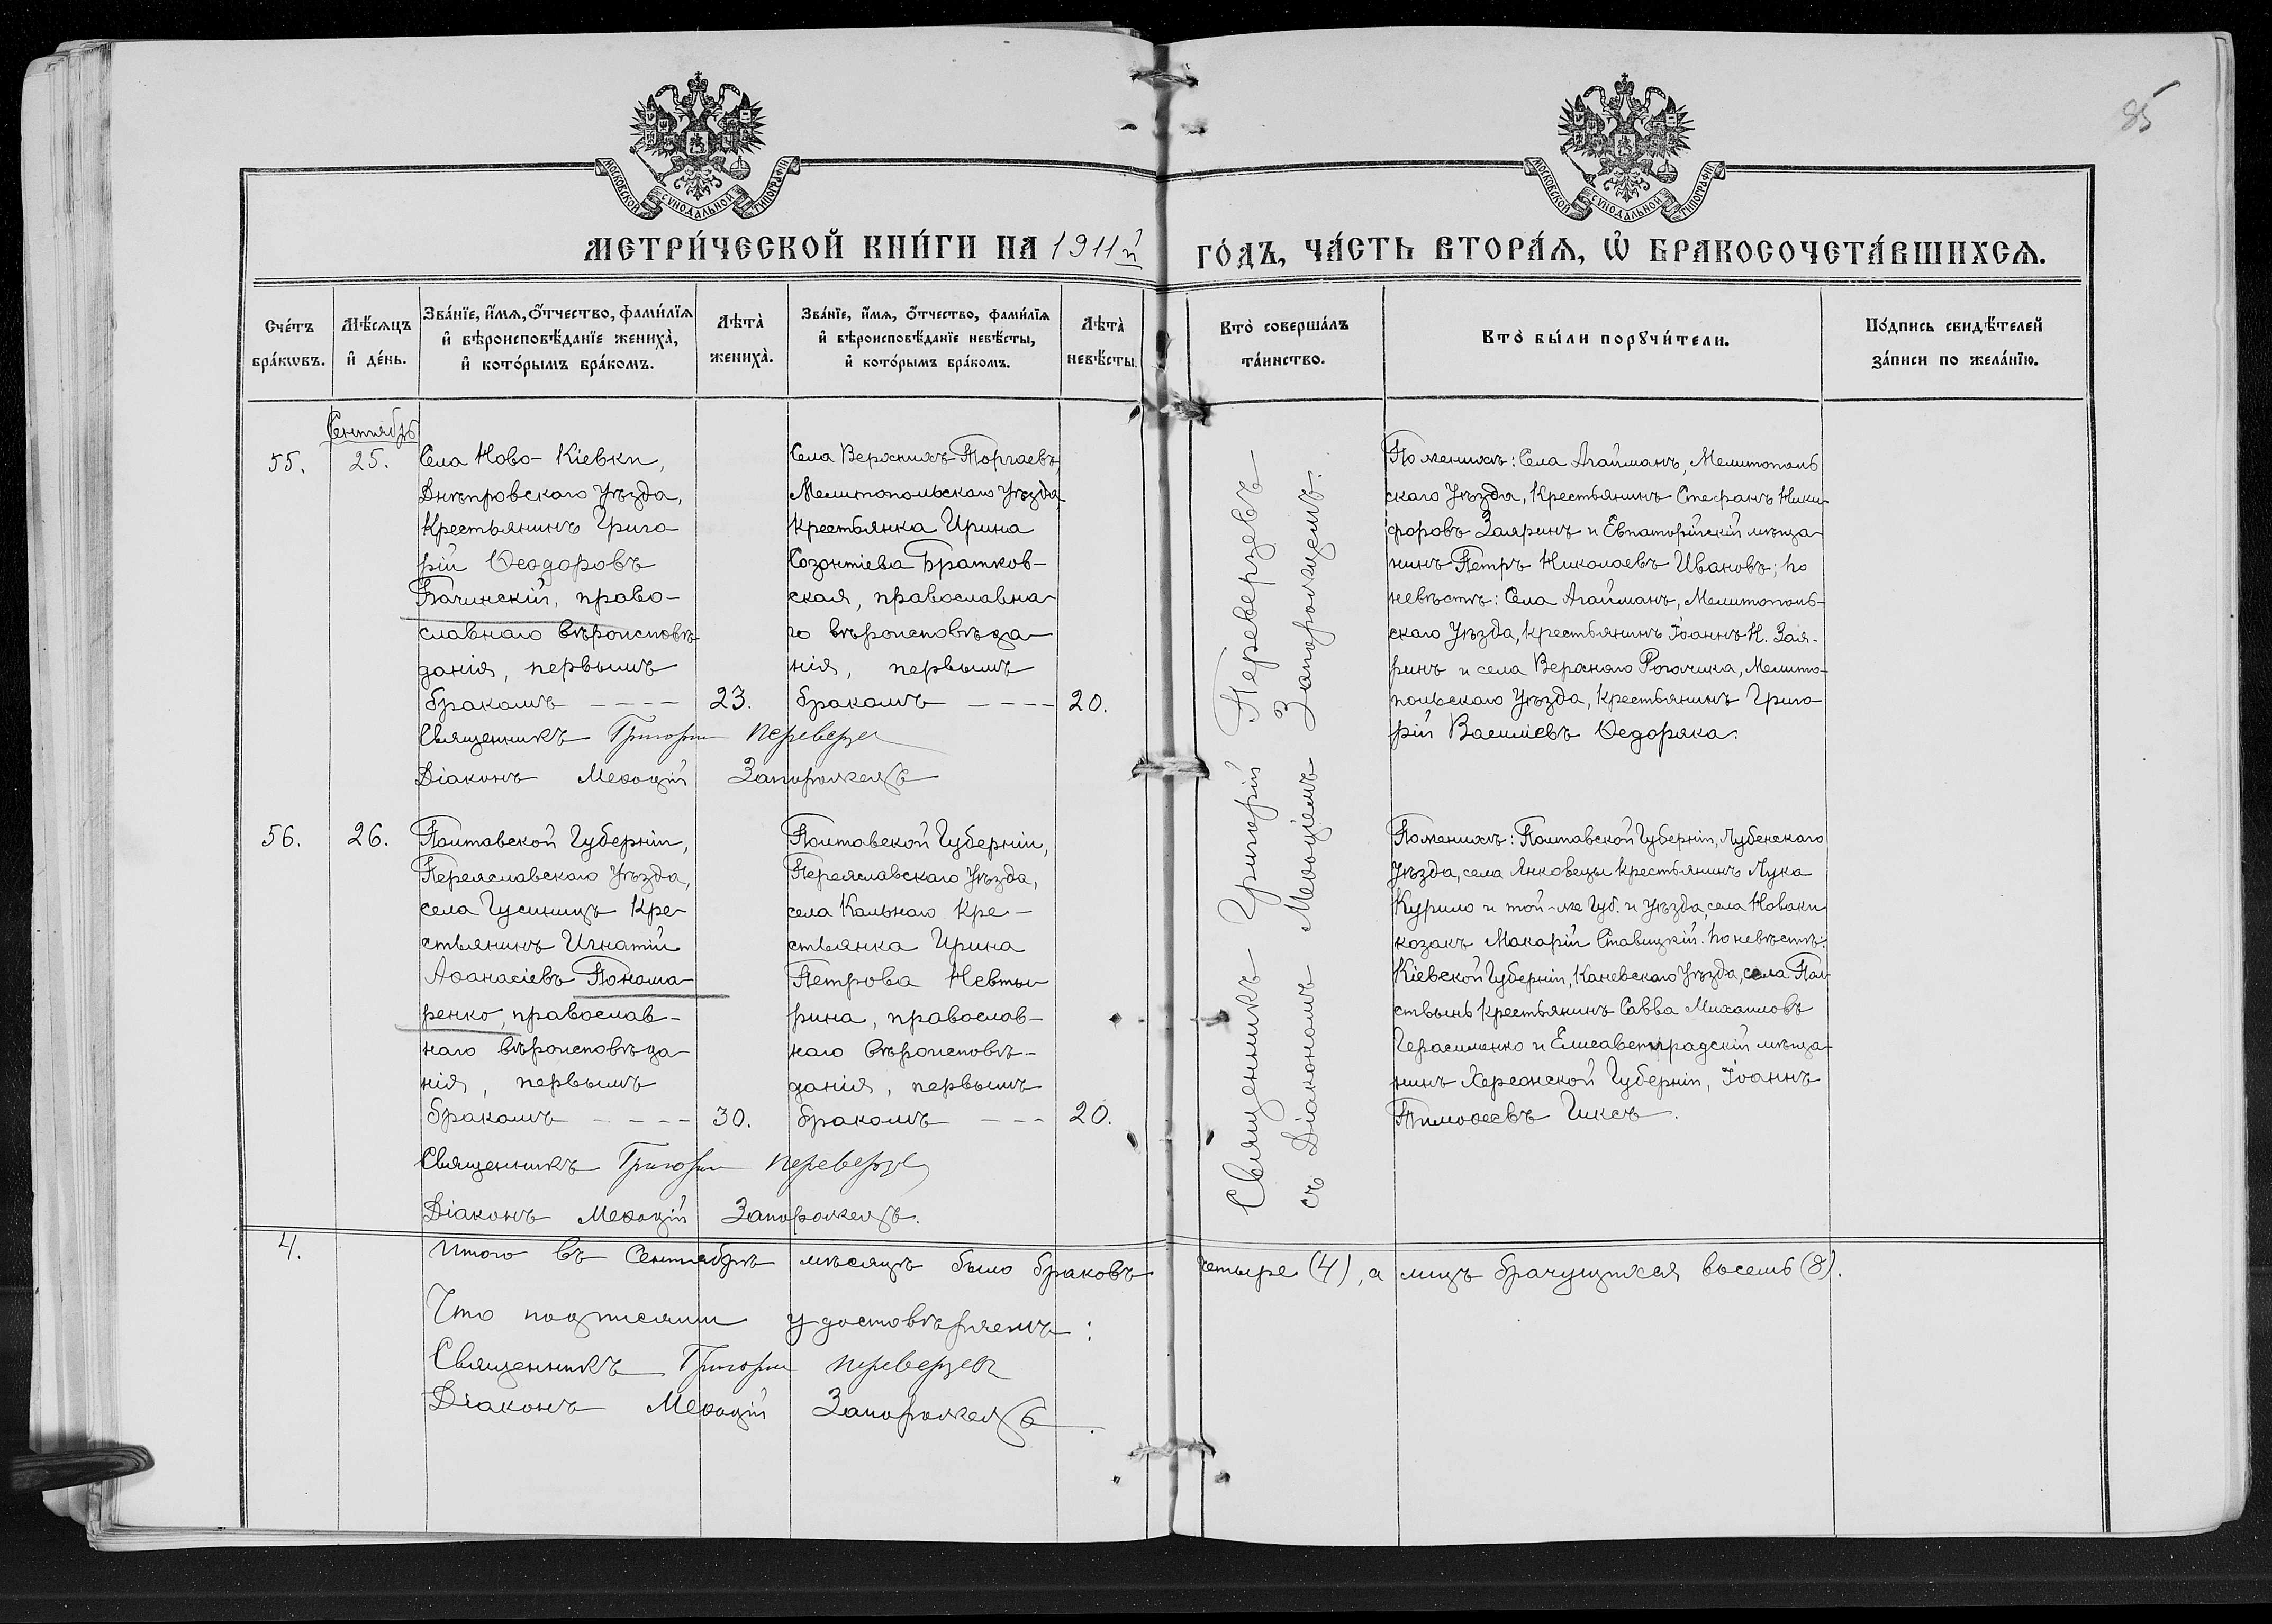 85
МОСКОВСКОЙ СѴНОДАЛЬНОЙ ТИПОГРАФІИ
МОСКОВСКОЙ СѴНОДАЛЬНОЙ ТИПОГРАФІИ
МЕТРИ́ЧЕСКОЙ КНИ́ГИ НА 1911й ГО́ДЪ, ЧА́СТЬ ВТОРА́Я, Ѡ҆ БРАКОСОЧЕТА́ВШИХСЯ.
Сче́тъ
бра́кѡвъ.
Мѣ́сяцъ
и҆ де́нь.
Зва́нїе, и҆́мя, ѻ҆́тчество, фами́лїя
и҆ вѣроисповѣ́данїе жениха̀,
и҆ кото́рымъ бра́комъ.
Лѣта̀
жениха̀.
Зва́нїе, и҆́мя, ѻ҆́тчество, фами́лїя
и҆ вѣроисповѣ́данїе невѣ́сты,
и҆ кото́рымъ бра́комъ.
Лѣта̀
невѣ́сты.
Кто̀ соверша́лъ
та́инство.
Кто̀ бы́ли порꙋчи́тели.
По́дпись свидѣ́телей
за́писи по жела́нїю.
Сентябрь
55.
25.
Села Ново-Кіевки,
Днѣпровскаго Уѣзда,
Крестьянинъ Григо-
рій Ѳеодоровъ
Бачинскій, право-
славнаго вѣроисповѣ-
данія, первымъ
бракомъ ----
23.
Села Верхнихъ Торгаевъ
Мелитопольскаго Уѣзда,
крестьянка Ирина
Созонтіева Братков-
ская, православна-
го вѣроисповѣда-
нія, первымъ
бракомъ ----
20.
Священникъ Григорій Переверзев
Діаконъ Меѳодій Запорожецъ
Священникъ Григорій Переверзевъ
съ Діакономъ Меѳодіемъ Запорожцемъ.
По женихѣ: Села Агайманъ, Мелитополь
скаго Уѣзда, Крестьянинъ Стефанъ Ники-
форовъ Заяринъ и Евпаторійскій мѣща-
нинъ Петръ Николаевъ Ивановъ; по
невѣстѣ: Села Агайманъ, Мелитополь-
скаго Уѣзда, крестьянинъ Іоаннъ Н. Зая-
ринъ и села Верхняго Рогачика, Мелито-
польскаго Уѣзда, Крестьянинъ Григо-
рій Василіевъ Ѳедоряка.
56.
26.
Полтавской Губерніи,
Переяславскаго Уѣзда,
села Гусиницъ Кре-
стьянинъ Игнатій
Аѳанасіевъ Понома-
ренко, православ-
наго вѣроисповѣда-
нія, первымъ
бракомъ ----
30.
Полтавской Губерніи,
Переяславскаго Уѣзда,
села Кальнаго Кре-
стьянка Ирина
Петрова Невты-
рина, православ-
наго вѣроисповѣ-
данія, первымъ
бракомъ ---
20.
Священникъ Григорій Переверзев
Діаконъ Меѳодій Запорожецъ.
По женихѣ: Полтавской Губерніи, Лубенскаго
Уѣзда, села Янковецы крестьянинъ Лука
Курило и той-же Губ. и Уѣзда, села Новаки
козакъ Макарій Ставицкій. По невѣстѣ:
Кіевской Губерніи, Каневскаго Уѣзда, села Пол-
ствынь крестьянинъ Савва Михаиловъ
Герасименко и Елисаветградскій мѣща-
нинъ Херсонской Губерніи, Іоаннъ
Тимоѳеевъ Гиксъ.
4.
Итого въ Сентябрѣ мѣсяцѣ было браковъ четыре (4), а лицъ брачущихся восемь (8).
Что подписями удостовѣряемъ:
Священникъ Григорій Переверзев
Діаконъ Меѳодій Запорожецъ.